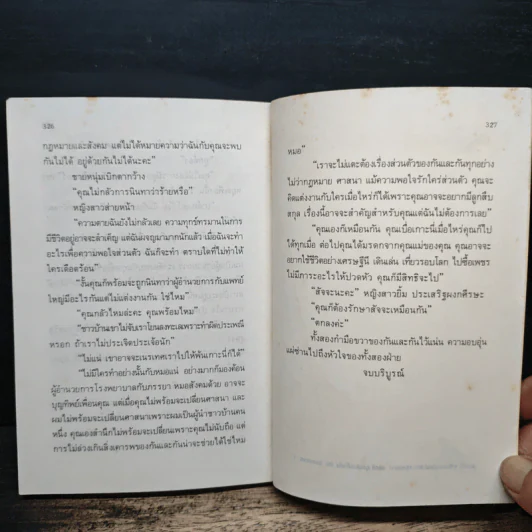 326
กฎหมายและสังคม แต่ไม่ได้หมายความว่าฉันกับคุณจะพบ
กันไม่ได้ อยู่ด้วยกันไม่ได้นะคะ”
ชายหนุ่มเบิกตากว้าง
“คุณไม่กลัวการนินทาว่าร้ายหรือ”
หญิงสาวส่ายหน้า
“ความตายฉันยังไม่กลัวเลย ความทุกข์ทรมานในการ
มีชีวิตอยู่อาจจะสำคัญ แต่ฉันผจญมามากนักแล้ว เมื่อฉันจะทำ
อะไรเพื่อความพอใจส่วนตัว ฉันก็จะทำ ตราบใดที่ไม่ทำให้
ใครเดือดร้อน”
“งั้นคุณก็พร้อมจะถูกนินทาว่าผู้อำนวยการกับแพทย์
ใหญ่มีอะไรกันแต่ไม่แต่งงานกัน ใช่ไหม”
“คุณกลัวไหมล่ะคะ คุณพร้อมไหม”
“ชาวบ้านเขาไม่จับเราโยนลงทะเลเพราะทำผิดประเพณี
หรอก ถ้าเราไม่ประเจิดประเจ้อนัก”
“ไม่แน่ เขาอาจจะเนรเทศเราไปให้พ้นเกาะนี่ก็ได้”
“ไม่มีใครทำอย่างนั้นกับหมอแน่ อย่างมากก็มองค้อน
ผู้อำนวยการโรงพยาบาลกับภรรยา หมอสังคมด้วย อาจจะ
บุญทิพย์เพื่อนคุณ แต่เมื่อคุณไม่พร้อมจะเปลี่ยนศาสนา และ
ผมไม่พร้อมจะเปลี่ยนศาสนาเพราะผมเป็นผู้นำชาวบ้านคน
หนึ่ง คุณเองสำนึกไม่พร้อมจะเปลี่ยนเพราะคุณไม่นับถือ แต่
การไม่ล่วงเกินสิ่งเคารพของกันและกันน่าจะช่วยได้ใช่ไหม
327
หมอ”
“เราจะไม่แตะต้องเรื่องส่วนตัวของกันและกันทุกอย่าง
ไม่ว่ากฎหมาย ศาสนา แม้ความพอใจรักใคร่ส่วนตัว คุณจะ
คิดแต่งงานกับใครเมื่อไหร่ก็ได้เพราะคุณอาจจะอยากมีลูกสืบ
สกุล เรื่องนี้อาจจะสำคัญสำหรับคุณแต่ฉันไม่ต้องการเลย”
“คุณเองก็เหมือนกัน คุณเบื่อเกาะนี่เมื่อไหร่คุณก็ไป
ได้ทุกเมื่อ ต่อไปคุณได้มรดกจากคุณแม่ของคุณ คุณอาจจะ
อยากใช้ชีวิตอย่างเศรษฐินี เดินเล่น เที่ยวรอบโลก ไปซื้อเพชร
ไม่มีภาระอะไรให้ปวดหัว คุณก็มีสิทธิจะไป”
“สัจจะนะคะ” หญิงสาวยิ้ม ประเสริฐผงกศีรษะ
“คุณก็ต้องรักษาสัจจะเหมือนกัน”
“ตกลงค่ะ”
ทั้งสองกำมือขวาของกันและกันไว้แน่น ความอบอุ่น
แผ่ซ่านไปถึงหัวใจของทั้งสองฝ่าย
จบบริบูรณ์